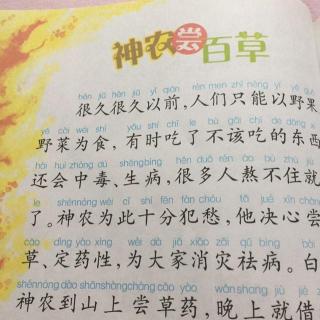 神农尝百草
hěn jiǔ hěn jiǔ yǐ qián rén men zhǐ néng yǐ yě guǒ
很久很久以前,人们只能以野果
yě cài wéi shí yǒu shí chī le bù gāi chī de dōng xi
野菜为食,有时吃了不该吃的东西
hái huì zhòng dú shēngbìng hěn duō rén áo bú zhù jiù
还会中毒、生病,很多人熬不住就
le shénnóng wèi cǐ shí fēn fàn chóu tā jué xīn cháng
了。神农为此十分犯愁,他决心尝
cǎo dìng yào xìng wèi dà jiā xiāo zāi qū bìng bái
草、定药性,为大家消灾祛病。白
shénnóng dào shānshàngcháng cǎo yào wǎnshang jiù jiè
神农到山上尝草药,晚上就借